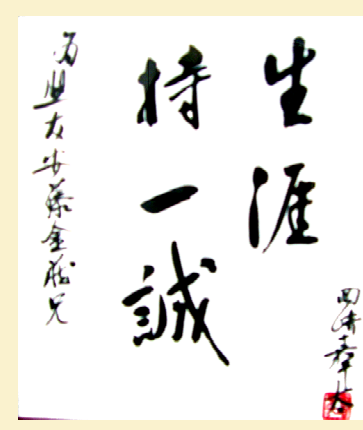 生涯
持一誠
為盟友安藤金兄